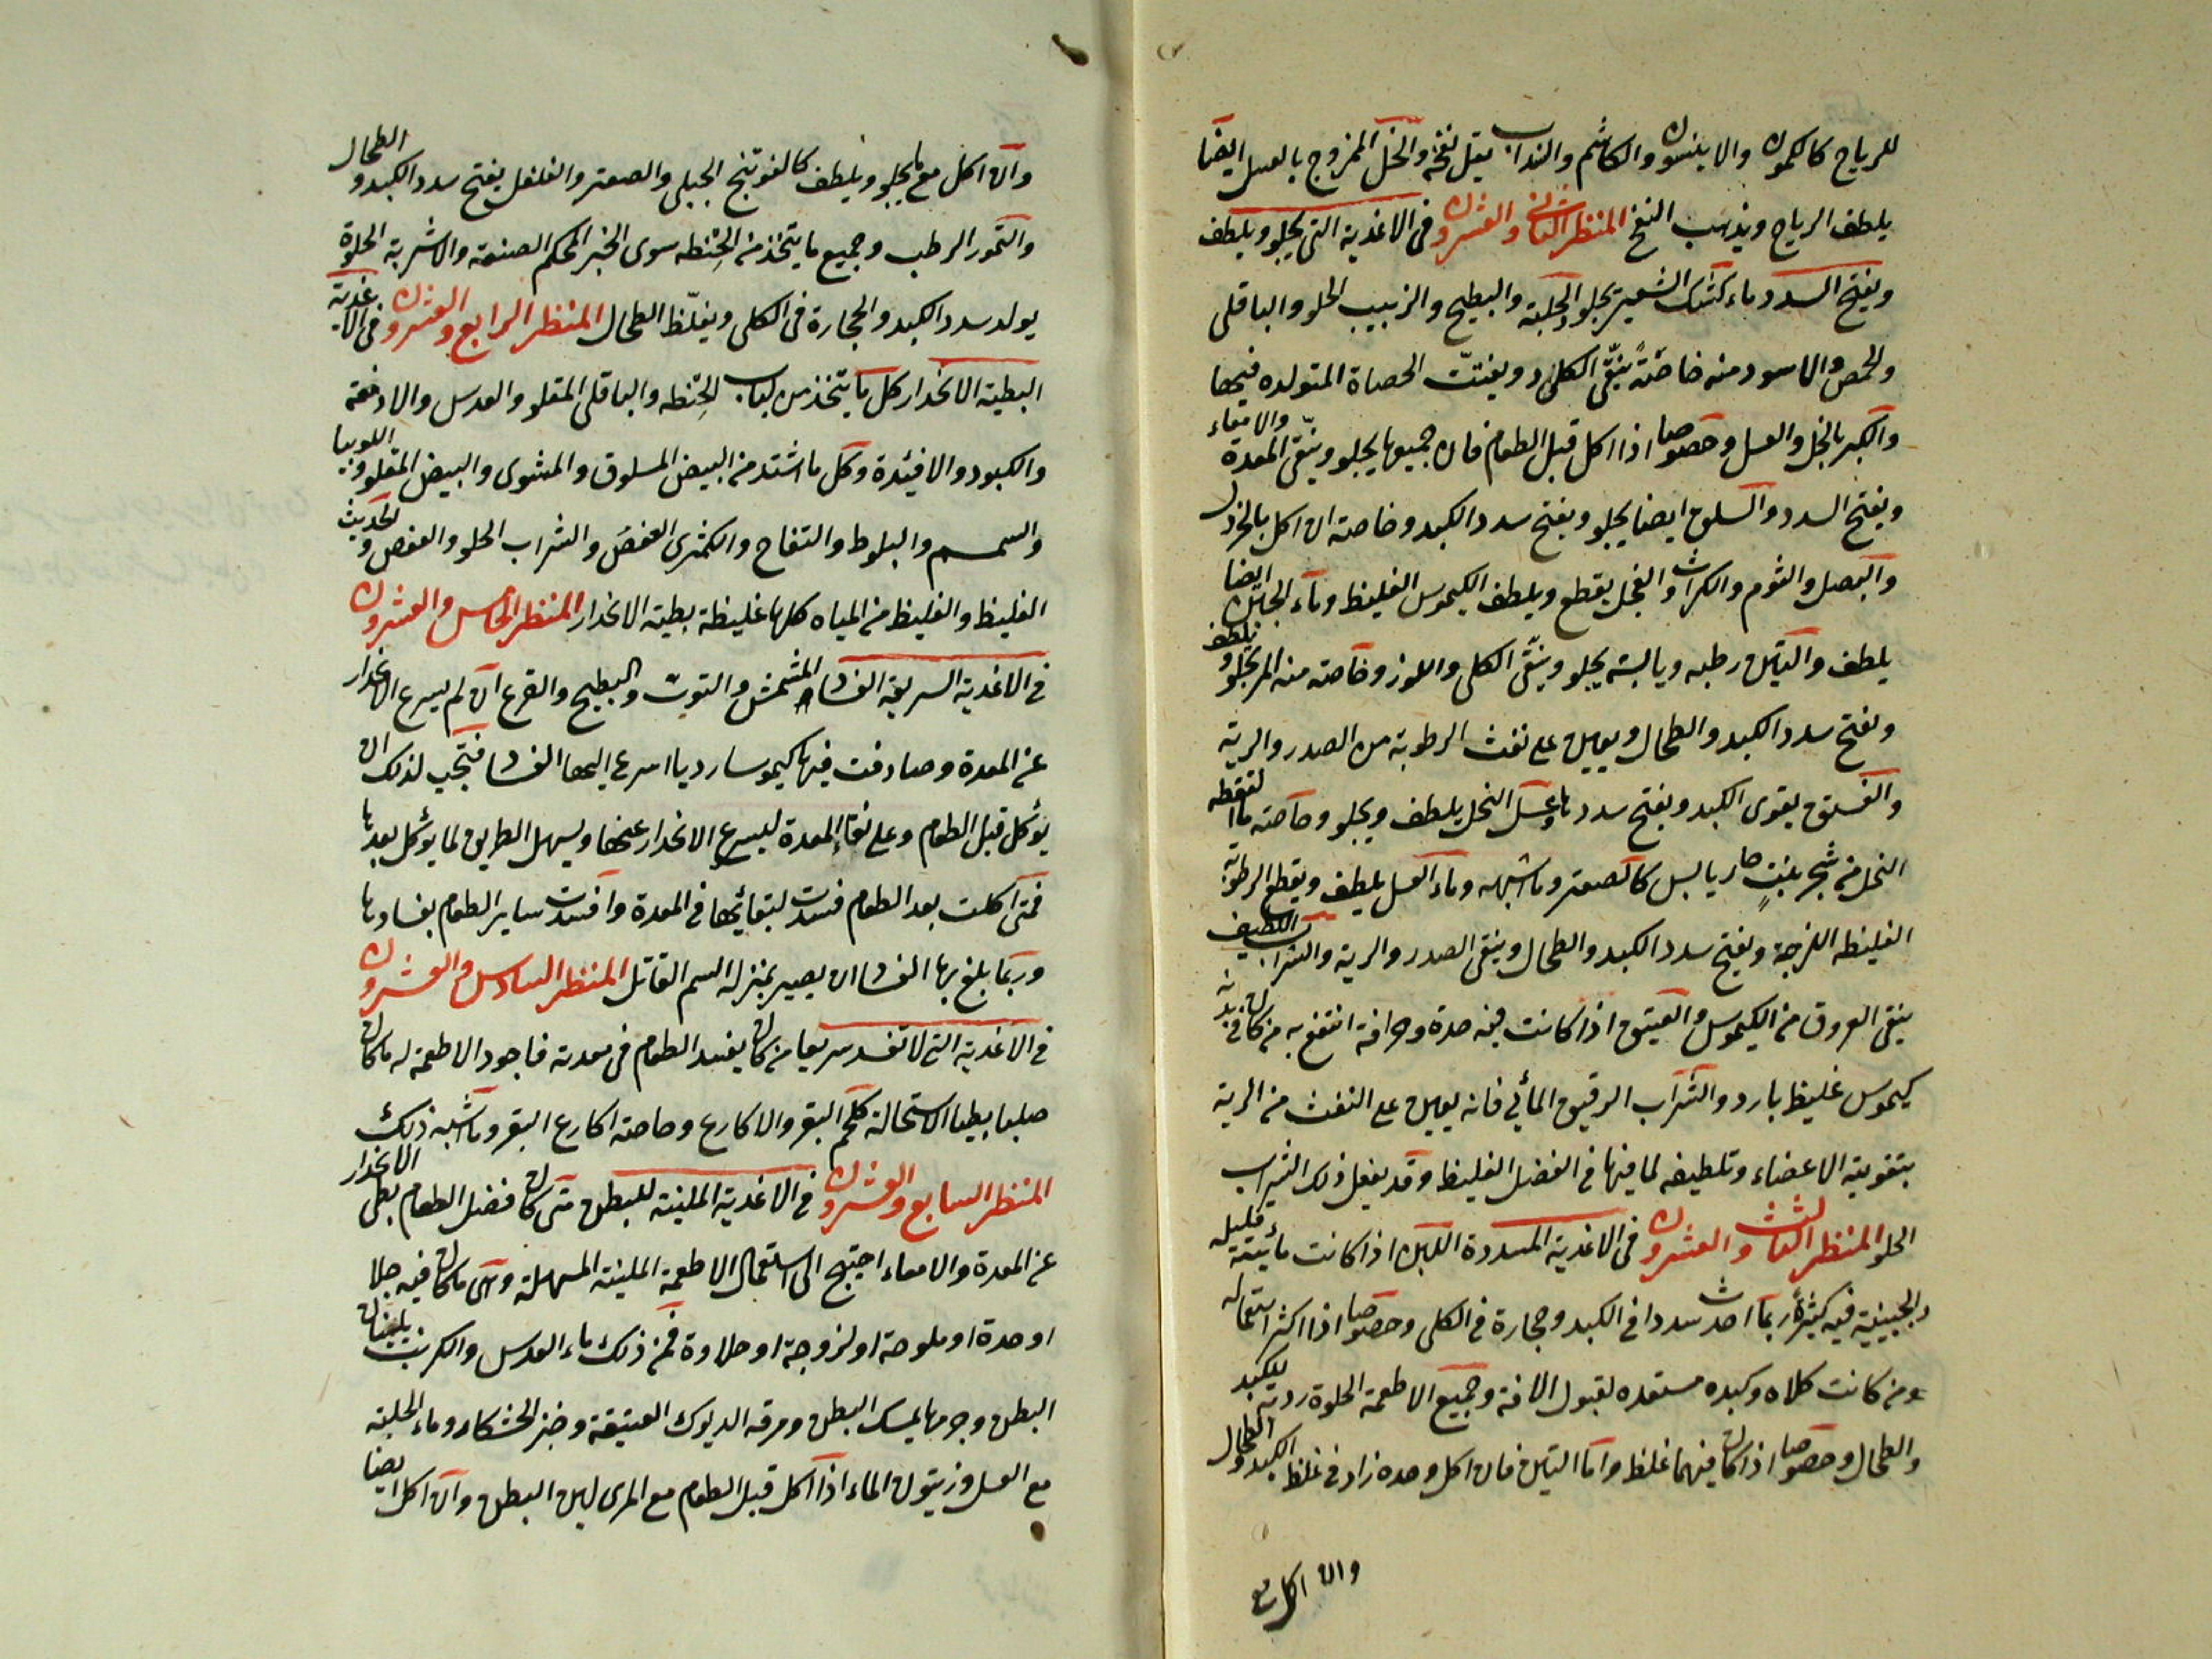 للرياح كالكمون والاينسون والكاشم والسداب يقل نفخه والخل الممزوج بالعسل ايضا
يلطف الرياح ويذهب النفخ المنظر الثاني والعشرون في الاغذية التي يجلو ويلطف
ويفتح السدد ماء كشك الشعير يجلو والحلبة والبطيخ والزبيب الحلو والباقلى
والحمص والاسود منه خاصّةً ينقّي الكلى ويفتّت الحصاة المتولده فيها
والكبر بالخل والعسل وخصوصا اذا اكل قبل الطعام فان جميعها يجلو وينقّي المعدة والامعاء
ويفتح السدد والسلق ايضا يجلو ويفتح سدد الكبد وخاصة ان اكل بالخردل
والبصل والثوم والكراث والفجل يقطع ويلطف الكيموس الغليظ وماء الجبن ايضا
يلطف والتين رطبه ويابسه يجلو وينقّي الكلى واللوز وخاصته منه المر يجلو ويلطف
ويفتح سدد الكبد والطحال ويعين على نفث الرطوبة من الصدر والرية
والفستق يقوى الكبد ويفتح سددها وعسل النحل يلطف ويجلو وخاصته ما التقطه
النحل من شجر ينبت حار يابس كالصعتر وما اشبهه وماء العسل يلطف ويقطع الرطوبة
الغليظه اللزجة ويفتح سدد الكبد والطحال وينقى الصدر والرية والشراب اللطيف
ينقى العروق من الكيموس والعتيق اذا كانت فيه حدة وحرافة انتفع به من كان في بدنه
كيموس غليظ بارد والشراب الرقيق المائي فانه يعين على النفث من الرية
بتقوية الاعضاء وتلطيفه لما فيها من الفضل الغليظ وقد يفعل ذلك الشراب
الحلو المنظر الثالث والعشرون في الاغذية المسددة اللبن اذا كانت مائيته قليله
والجبنية فيه كثيرةً ربما احدث سددا في الكبد وحجارة في الكلى وخصوصا اذا اكثر استعماله
ومن كانت كلاه وكبده مستعده لقبول الافة وجميع الاطعمة الحلوة ردية للكبد
والطحال وخصوصا اذا كان فيهما غلظ واما التين فان اكل وحده زاد في غلظ الكبد والطحال
وان اكل مع
وان اكل مع ما يجلو ويلطف كالفوتنج الجبلي والصعتر والفلفل يفتح سدد الكبد و الطحال
والتمور الرطب وجميع ما يتخذ من الحنطه سوى الخبز المحكم الصنعة والاشربة الحلوة
يولد سدد الكبد والحجارة في الكلى ويغلّظ الطحال المنظر الرابع والعشرون في الاغذية
البطية الانحدار كل ما يتخذ من لباب الحنطه والباقلى المقلو والعدس والادمغة
والكبود والافئدة وكل ما اشتد من البيض المسلوق والمشوى والبيض المقلو واللوبيا
والسمسم والبلوط والتفاح والكمثرى العفص والشراب الحلو والعفص والحديث
الغليظ والغليظ من المياه كلها غليظة بطية الانحدار المنظر الخامس والعشرون
في الاغذية السريعة الفساد المشمش والتوت والبطيخ والقرع ان لم يسرع الانحدار
عن المعدة وصادفت فيها كيموسا رديا اسرع اليها الفساد فتجب لذلك ان
يؤكل قبل الطعام وعلى نقاء المعدة ليسرع الانحدار عنها ويسهل الطريق لما يؤكل بعدها
فمتى اكلت بعد الطعام فسدت لبقائها في المعدة وافسدت ساير الطعام بفسادها
وربما بلغ بها الفساد ان يصير بمنزلة السم القاتل المنظر السادس والعشرون
في الاغذية التي لا تفسد سريعا من كان يفسد الطعام في معدته فاجود الاطعمة له ما كان
صلبا بطيا الاستحالة كلحم البقر والاكارع وخاصته اكارع البقر وما اشبه ذلك
المنظر السابع والعشرون في الاغذية الملينة للبطن متى كان فضل الطعام بطى الانحدار
عن المعدة والامعاء احتيج الى استعمال الاطعمة الملينة المسهلة وهي ما كان فيه جلا
او حدة او ملوحة او لزوجة او حلاوة فمن ذلك ماء العدس والكرنب يلينان
البطن وجرمها يمسك البطن ومرقه الديوك العتيقة وخبز الخشكار وماء الحلبة
مع العسل وزيتون الماء اذا اكل قبل الطعام مع المرى لين البطن وان اكل ايضا